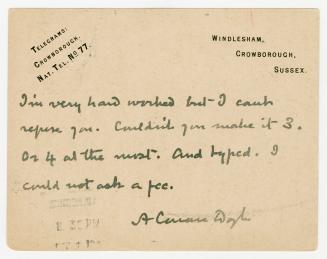 TELEGRAMS:
CROWBOROUGH.
NAT. TEL. NO 77.
WINDLESHAM,
CROWBOROUGH,
SUSSEX.
I'm very hard worked but I can't
refuse you. Couldn't you make it 3.
Or 4 at the most. And typed. I
could not ask a fee.
A Conan Doyle